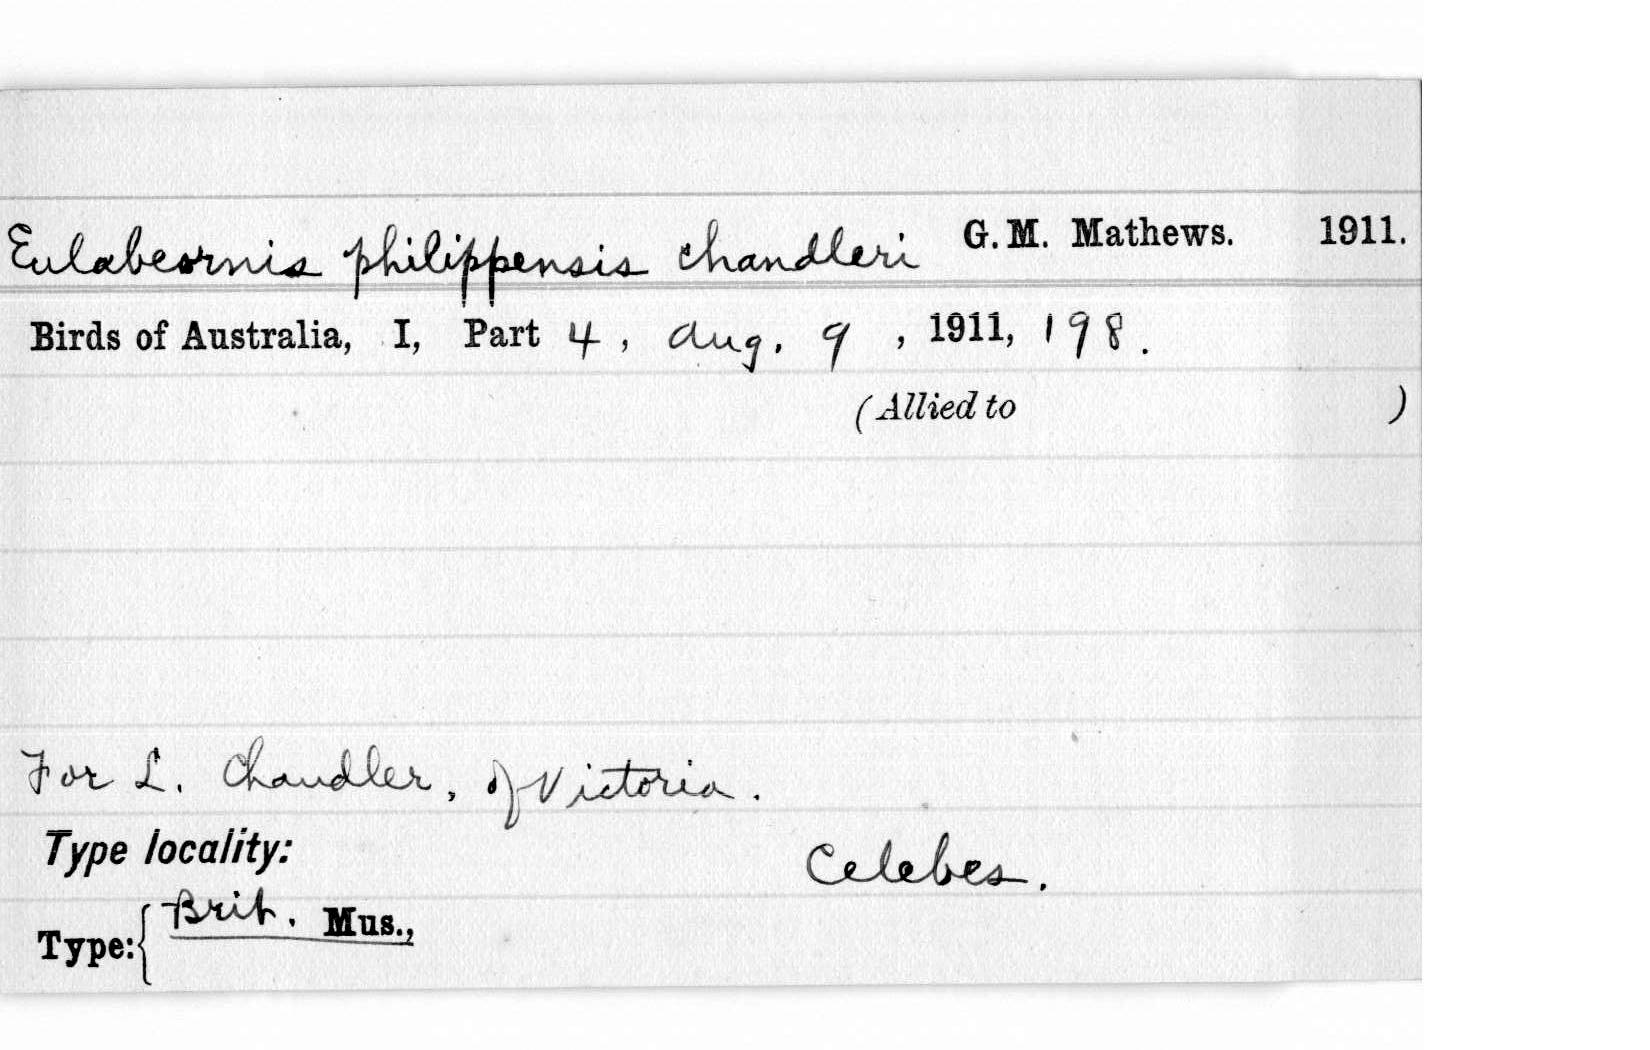 Eulabeornis philippensis chandleri G.M. Mathews. 1911.
Birds of Australia, I, Part 4, Aug. 9, 1911, 198.
(Allied to )
For L. Chandler, of Victoria.
Type locality: Celebes.
Type: { Brit. Mus.,